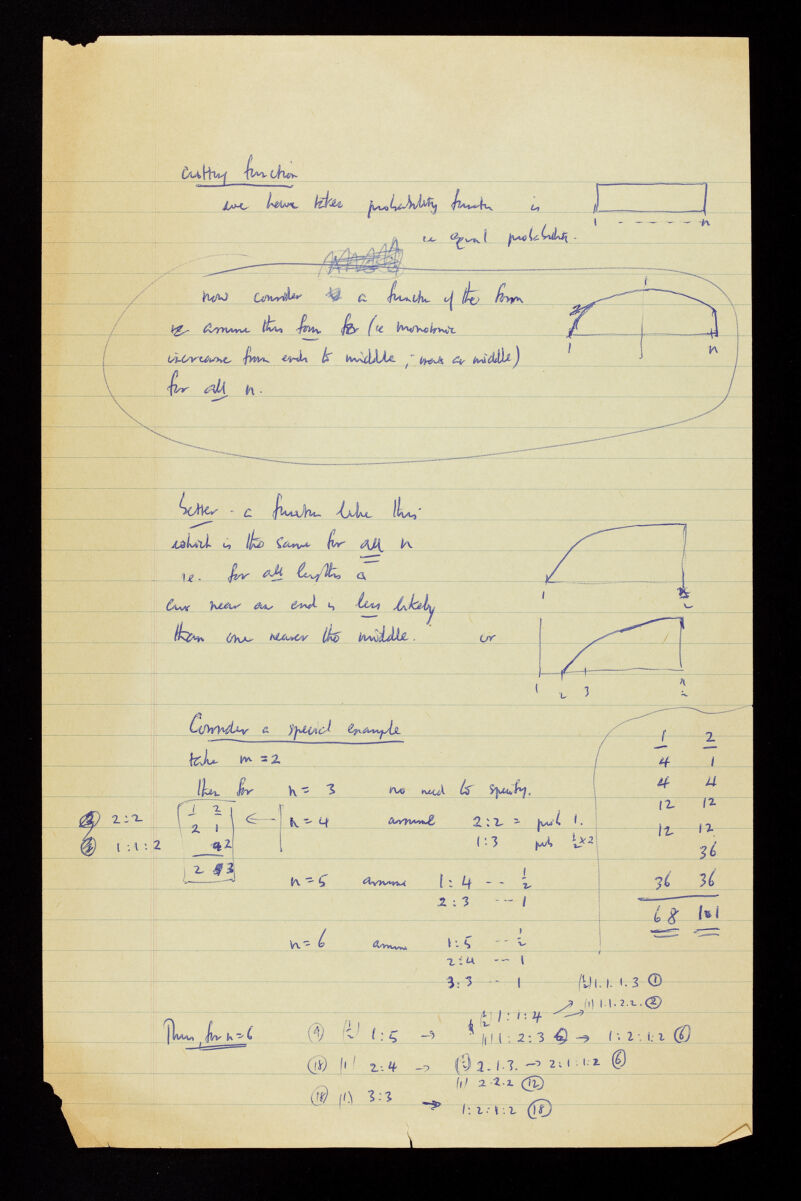 cutting function
we have taken probability function is
1 - - - - - - n
ie equal probability.
now consider a function of the form
assume this form for (ie monotonic
increase from ends to middle ; max at middle)
for all n.
1 n
better - a function like this
which is the same for all n
ie. for all lengths a
cut near an end is less likely
than one nearer the middle. or
1 n/2
1 2 3 n/2
Consider a special example
take m = 2
then for n = 3 no need to specify.
n = 4 assume 2:2 = prob 1.
1:3 prob ½ x 2
2:2
1:1:2
1 2
2 1
2
2 3
n = 5 assume 1:4 -- ½
2:3 --- 1
n = 6 assume 1:5 -- ½
2:4 -- 1
3:3 -- 1
1 2
4 1
4 4
12 12
12 12
36
36 36
68 101
(½) 1.1.1.3 (1)
(1) 1.1.2.2. (2)
Thus, for n = 6 (9) (½) 1:5 → (½) 1:1:4 →
(1) 1:2:3 → 1:2:1:2 (6)
(18) (1) 2:4 → (½) 2.1.3. → 2:1:1:2 (6)
(1) 2.2.2 (12)
(18) (1) 3:3 → 1:2:1:2 (18)